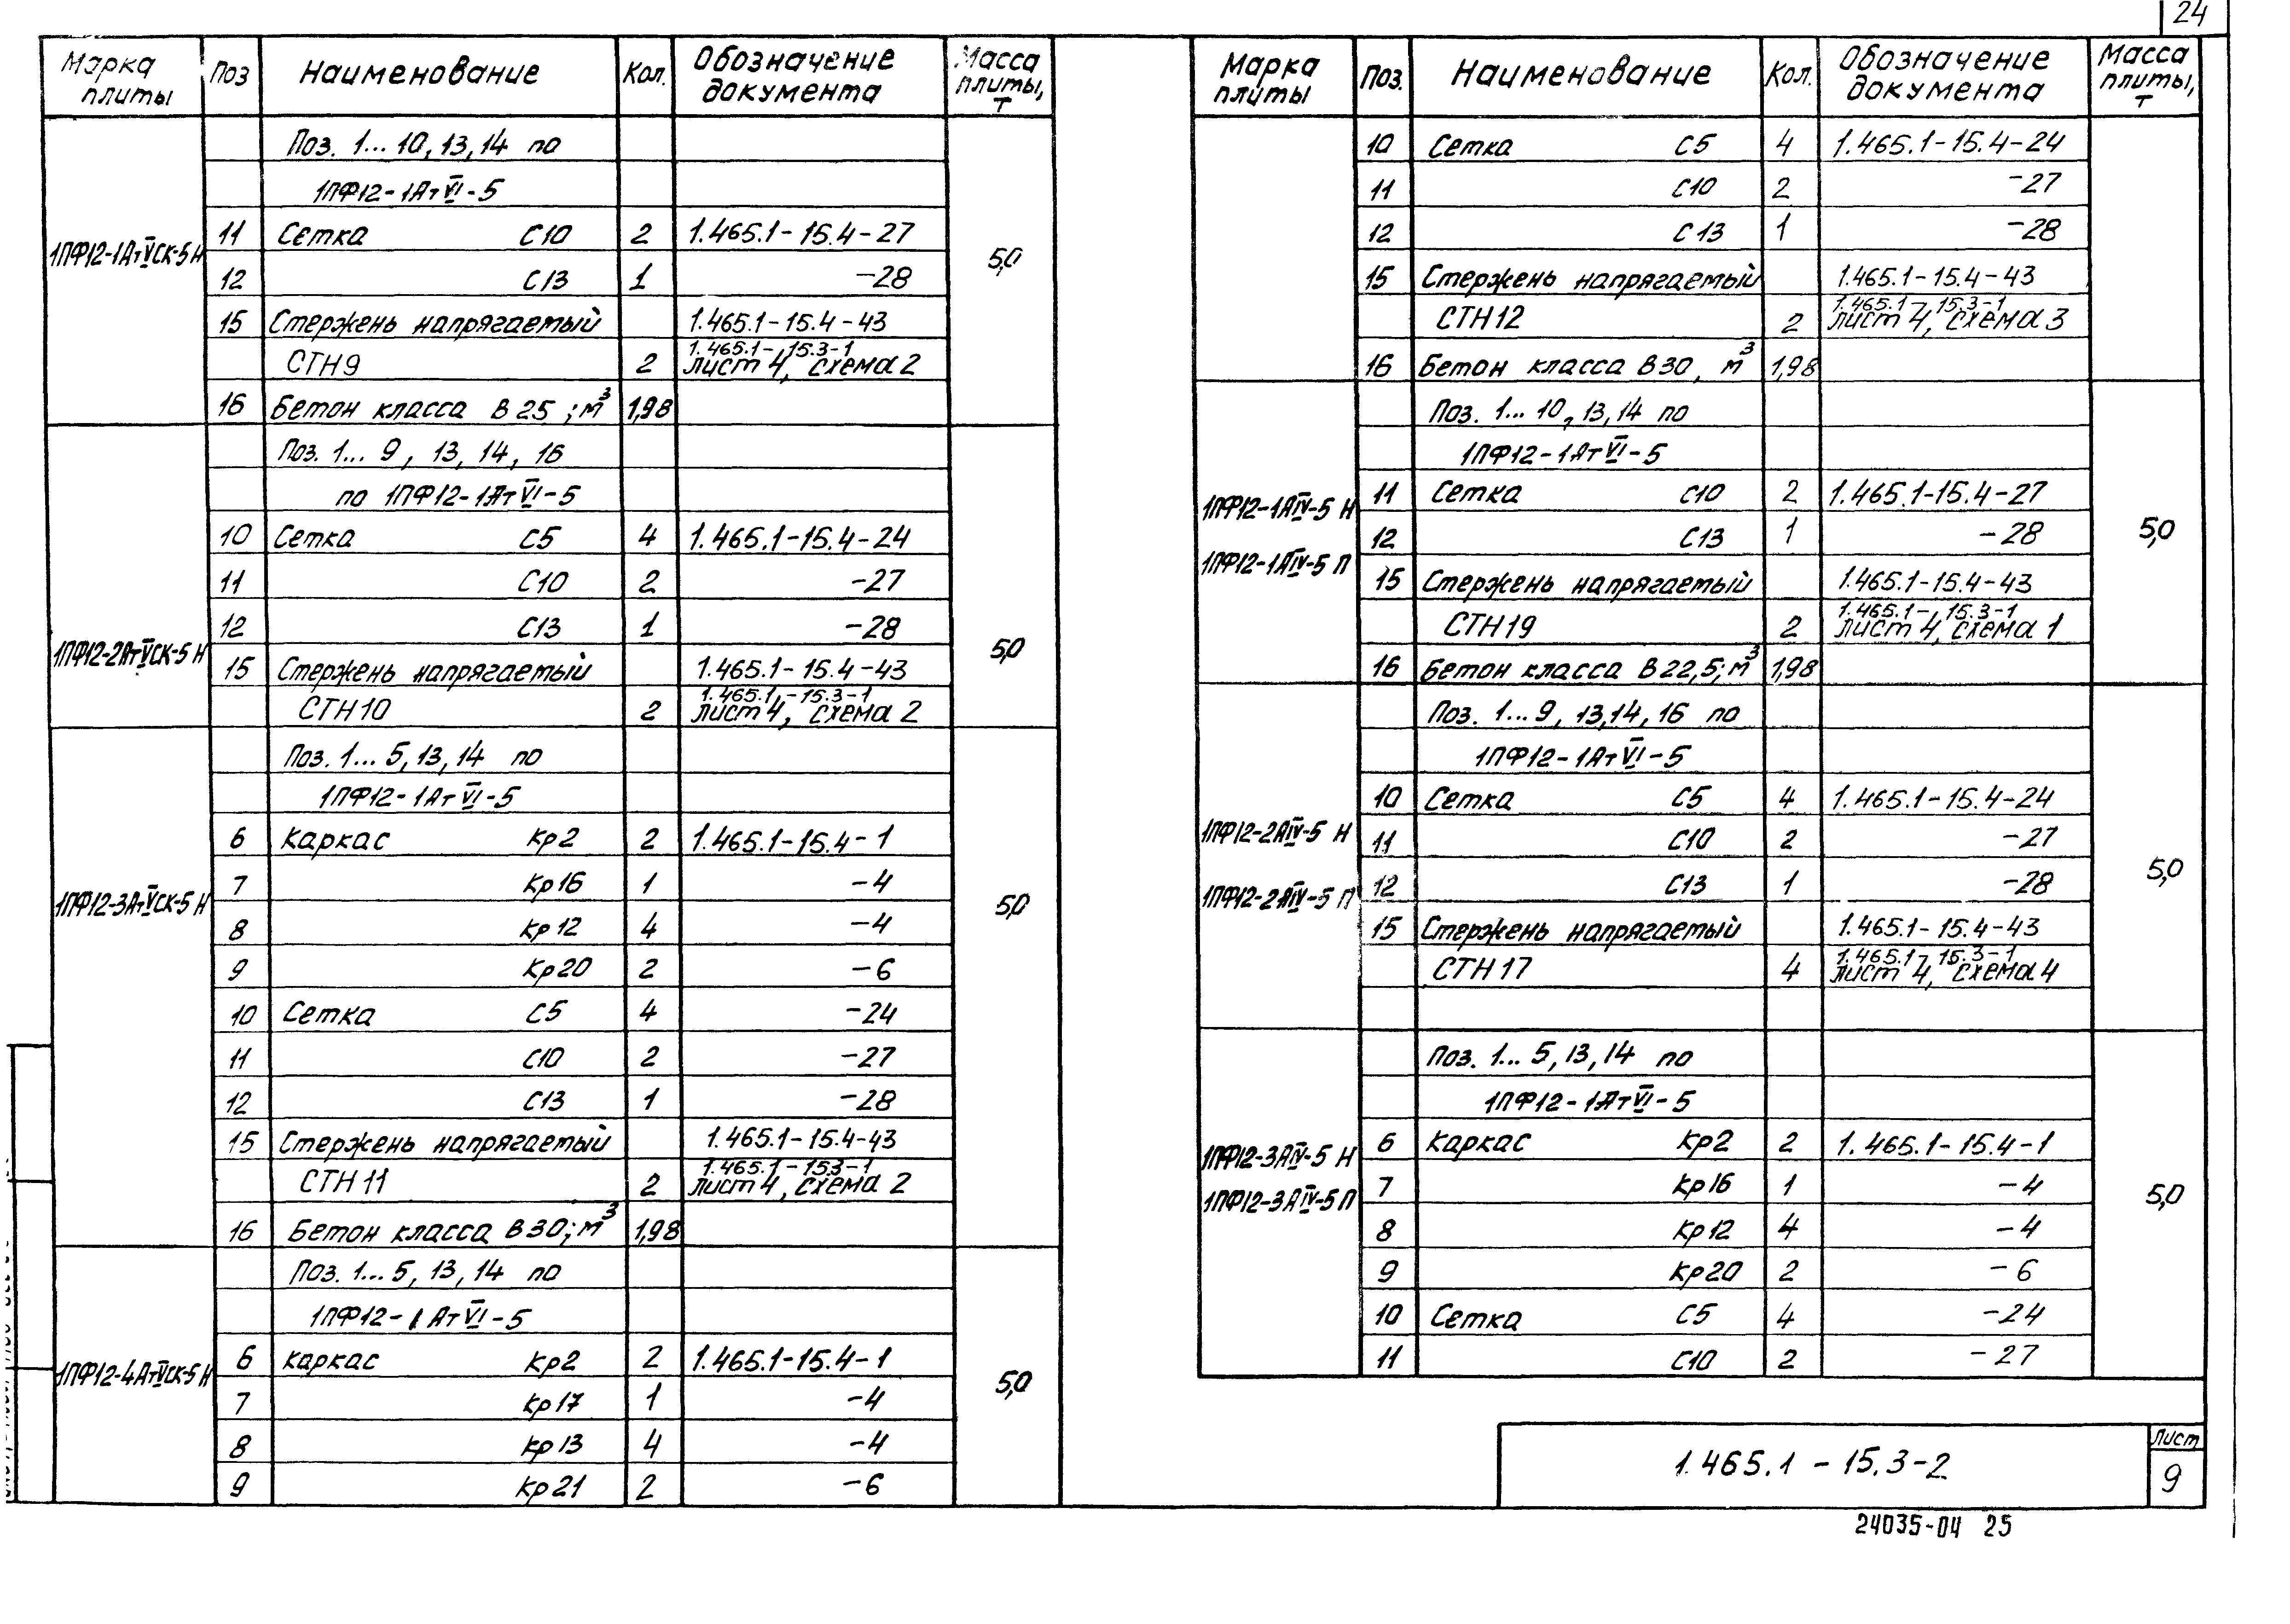 24
Марка плиты | Поз | Наименование | Кол. | Обозначение документа | Масса плиты, т
Поз. 1... 10, 13, 14 по
1ПФ12-1АтVI-5
1ПФ12-1АтVСК-5 Н
5,0
11 Сетка С10 2 1.465.1-15.4-27
12 С13 1 -28
15 Стержень напрягаемый 1.465.1-15.4-43
1.465.1-15.3-1
СТН9 2 лист 4, схема 2
16 Бетон класса В25; м³ 1,98
Поз. 1... 9, 13, 14, 16
по 1ПФ12-1АтVI-5
10 Сетка С5 4 1.465.1-15.4-24
11 С10 2 -27
12 С13 1 -28
1ПФ12-2АтVСК-5 Н
5,0
15 Стержень напрягаемый 1.465.1-15.4-43
1.465.1-15.3-1
СТН10 2 лист 4, схема 2
Поз. 1... 5, 13, 14 по
1ПФ12-1АтVI-5
6 Каркас Кр2 2 1.465.1-15.4-1
7 Кр16 1 -4
1ПФ12-3АтVСК-5 Н
5,0
8 Кр12 4 -4
9 Кр20 2 -6
10 Сетка С5 4 -24
11 С10 2 -27
12 С13 1 -28
15 Стержень напрягаемый 1.465.1-15.4-43
1.465.1-15.3-1
СТН11 2 лист 4, схема 2
16 Бетон класса В30; м³ 1,98
Поз. 1... 5, 13, 14 по
1ПФ12-1АтVI-5
6 Каркас Кр2 2 1.465.1-15.4-1
1ПФ12-4АтVСК-5 Н
5,0
7 Кр17 1 -4
8 Кр13 4 -4
9 Кр21 2 -6
Марка плиты | Поз. | Наименование | Кол. | Обозначение документа | Масса плиты, т
10 Сетка С5 4 1.465.1-15.4-24
11 С10 2 -27
12 С13 1 -28
15 Стержень напрягаемый 1.465.1-15.4-43
1.465.1-15.3-1
СТН12 2 лист 4, схема 3
16 Бетон класса В30, м³ 1,98
Поз. 1... 10, 13, 14 по
1ПФ12-1АтVI-5
11 Сетка С10 2 1.465.1-15.4-27
1ПФ12-1АIV-5 Н
12 С13 1 -28
5,0
1ПФ12-1АIV-5 П
15 Стержень напрягаемый 1.465.1-15.4-43
1.465.1-15.3-1
СТН19 2 лист 4, схема 1
16 Бетон класса В22,5; м³ 1,98
Поз. 1... 9, 13, 14, 16 по
1ПФ12-1АтVI-5
10 Сетка С5 4 1.465.1-15.4-24
1ПФ12-2АIV-5 Н
11 С10 2 -27
12 С13 1 -28
5,0
1ПФ12-2АIV-5 П
15 Стержень напрягаемый 1.465.1-15.4-43
1.465.1-15.3-1
СТН17 4 лист 4, схема 4
Поз. 1... 5, 13, 14 по
1ПФ12-1АтVI-5
6 Каркас Кр2 2 1.465.1-15.4-1
1ПФ12-3АIV-5 Н
7 Кр16 1 -4
1ПФ12-3АIV-5 П
5,0
8 Кр12 4 -4
9 Кр20 2 -6
10 Сетка С5 4 -24
11 С10 2 -27
1.465.1-15.3-2
Лист
9
24035-04 25